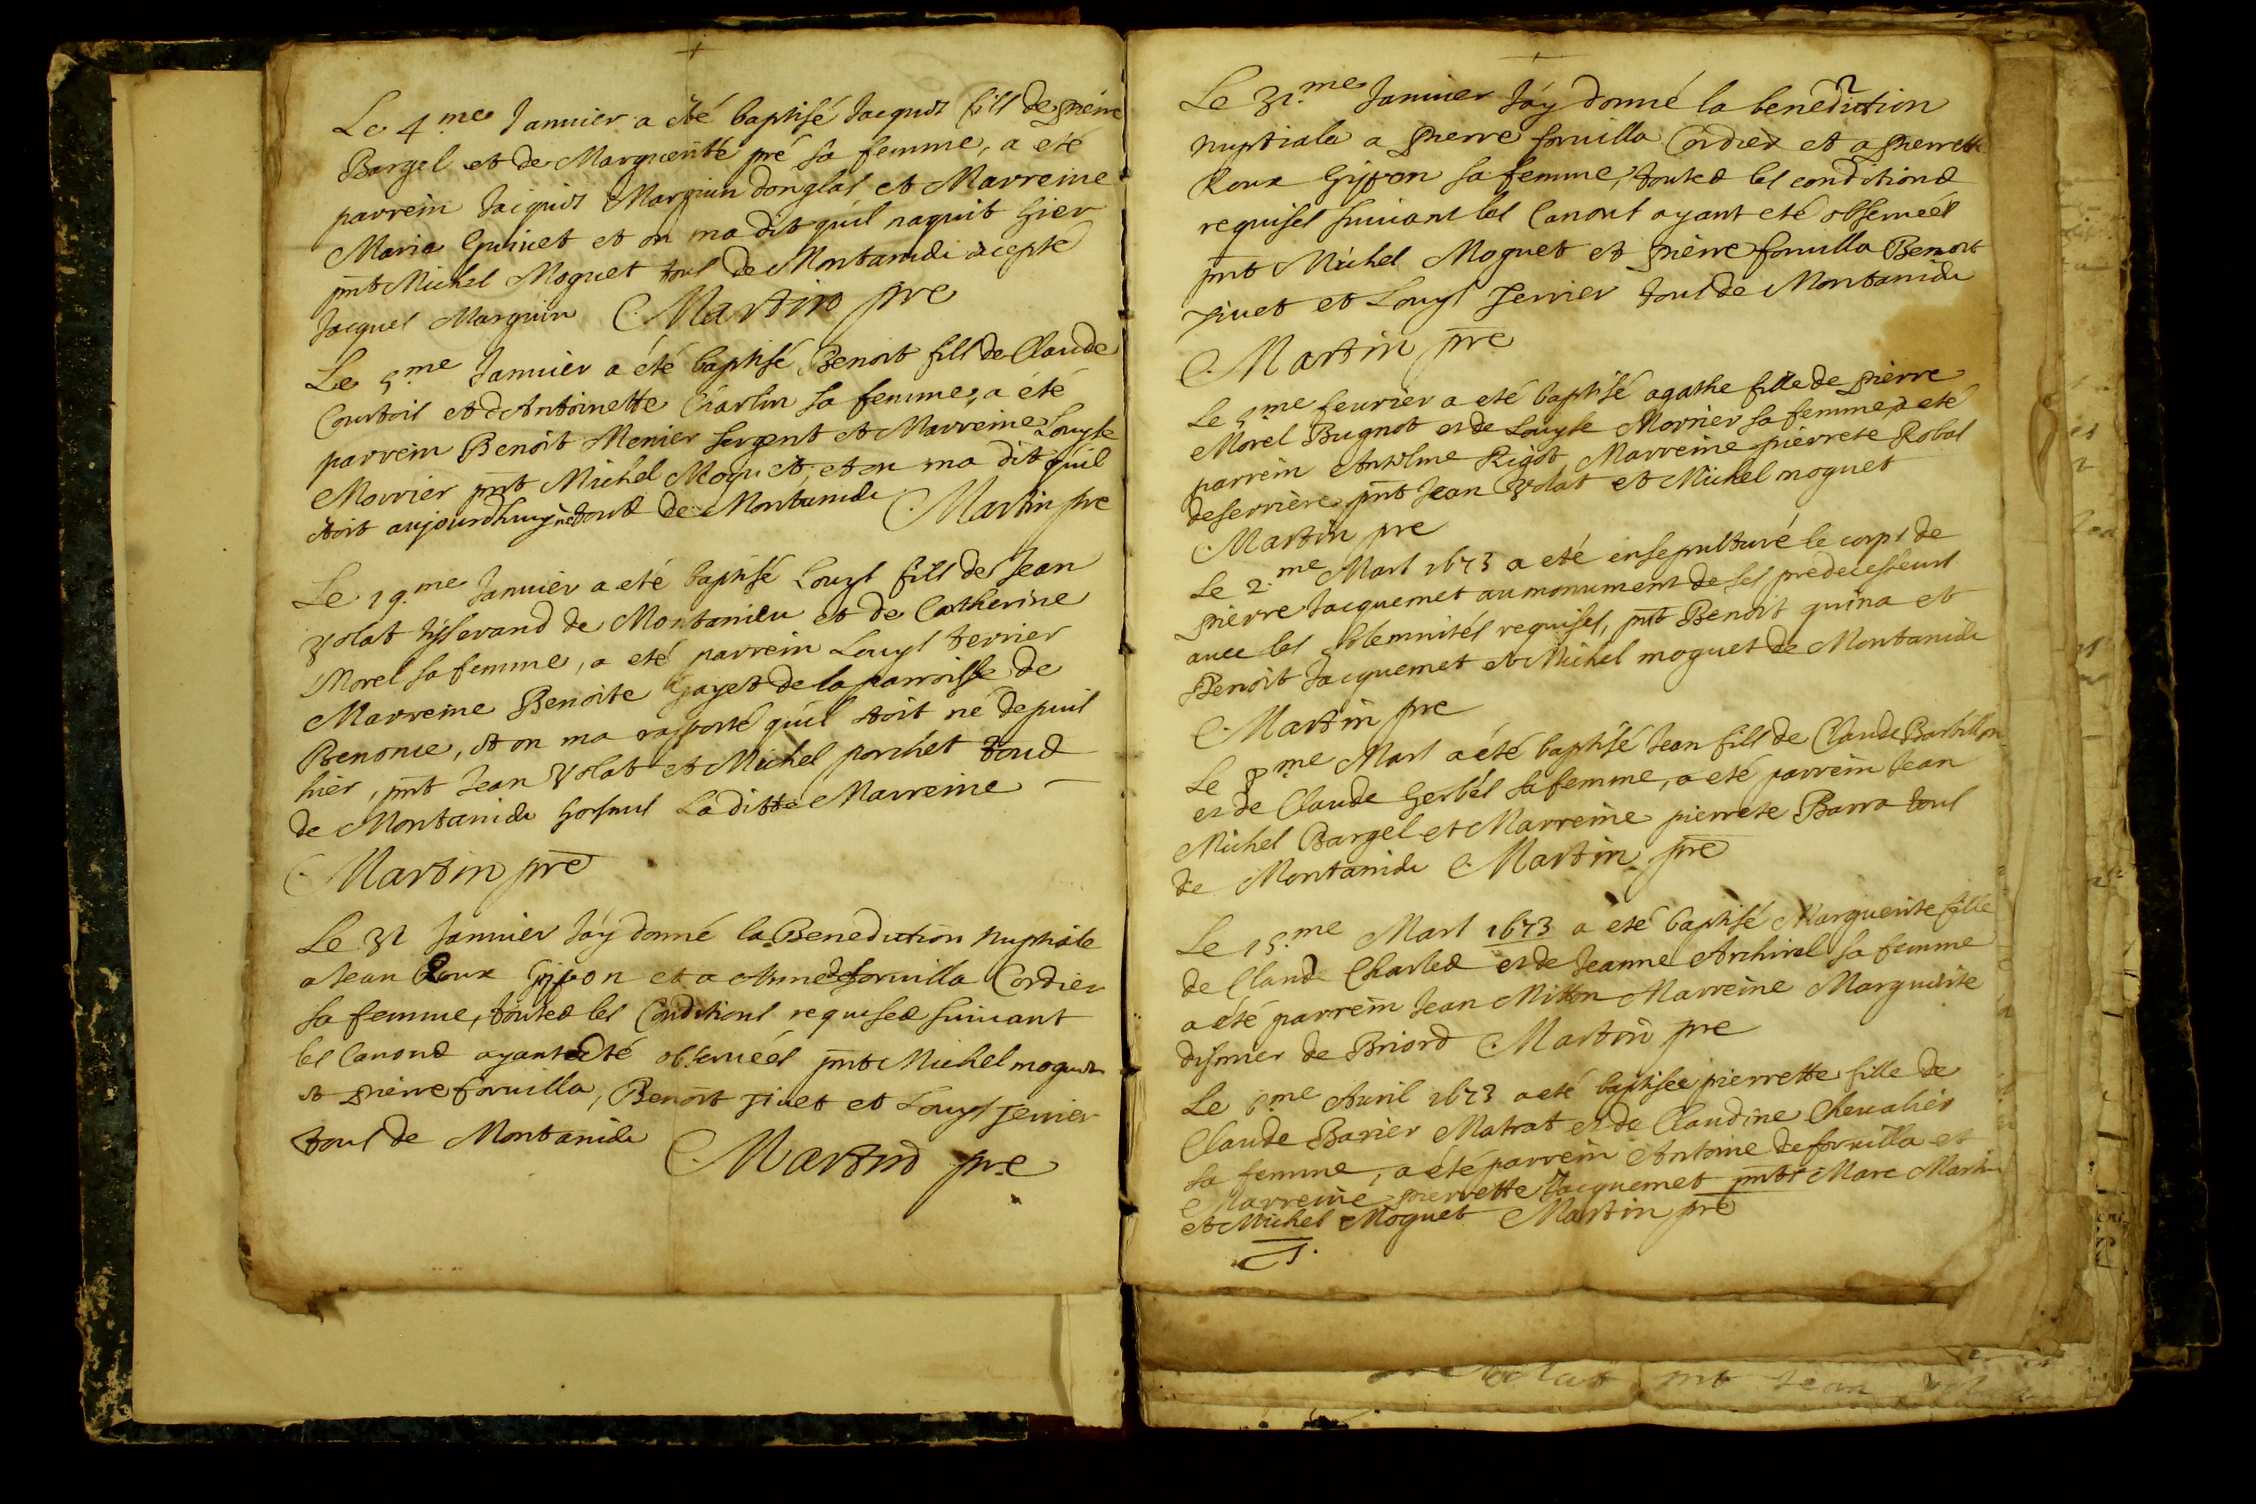 Le 4.me Januier a été baptisé Jacques fils de pierre
Bargel et de Marguerite pré sa femme, a été
parrein Jacques Marguin donglas et Marreine
Maria Guinet et on ma dit quil naquit hier
pnt Michel Moguet tous de Montanidu excepté
Jacques Marguin Martin pre
Le 5.me Januier a été baptisé Benoit fils de Claude
Courtois et dAntoinette Charlin sa femme, a été
parrein Benoit Menier sergent et Marreine Louyse
Morrier pnt Michel Moguet, et on ma dit quil
étoit aujourdhuy né tous de Montanidu Martin pre
Le 19.me Januier a eté baptisé Louys fils de Jean
Volat tisserand de Montanieu et de Catherine
Morel sa femme, a eté parrein Louys terrier
Marreine Benoite Gayet de la parroisse de
Benonce, et on ma rapporté quil étoit né depuis
hier, pnt Jean Volat et Michel porchet tous
de Montanidu horsmis Laditte Marreine
Martin pre
Le 31 Januier Jáy donné la Benediction Nuptiale
a Jean Roux Gippon et a Anne foruilla Cordier
sa femme, toutes les Conditions requises suiuant
les Canons ayant eté obseruées pnt Michel moguet
et pierre foruilla, Benoit Tiuet et Louys Terrier
tous de Montanidu
Martin pre
Le 31.me Januier Jáy donné la benediction
nuptiale a pierre foruilla Cordier et a pierrette
Roux Gippon sa femme, toutes les conditions
requises suiuant les Canons ayant eté obseruées
pnt Michel Moguet et pierre foruilla Benoit
Tiuet et Louys Terrier tous de Montanidu
Martin pre
Le 5.me feurier a eté baptisé agathe fille de pierre
Morel Bugnot et de Louyse Morrier sa femme, a eté
parrein Antelme Rigot Marreine pierrete Robat
deserriere, pnt Jean Volat et Michel moguet
Martin pre
Le 2.me Mars 1673 a eté ensepulturé le corps de
pierre Jacquemet au monument de ses predecesseurs
auec les solemnités requises, pnt Benoit quina et
Benoit Jacquemet et Michel moguet de Montanidu
Martin pre
Le 8.me Mars a été baptisé Jean fils de Claude Barbillon
et de Claude Gerbel sa femme, a eté parrein Jean
Michel Bargel et Marreine pierrete Barra tous
de Montanidu Martin pre
Le 15.me Mars 1673 a eté baptisé Marguerite fille
de Claude Charles et de Jeanne Archirel sa femme
a été parrein Jean Mitton Marreine Marguerite
dismier de Briord Martin pre
Le 6.me Auril 1673 a eté baptisée pierrette fille de
Claude Barier Matrat et de Claudine Cheualier
sa femme, a été parrein Antoine de foruilla et
Marreine pierrette Jacquemet pnts Marc Martin
et Michel Moguet Martin pre